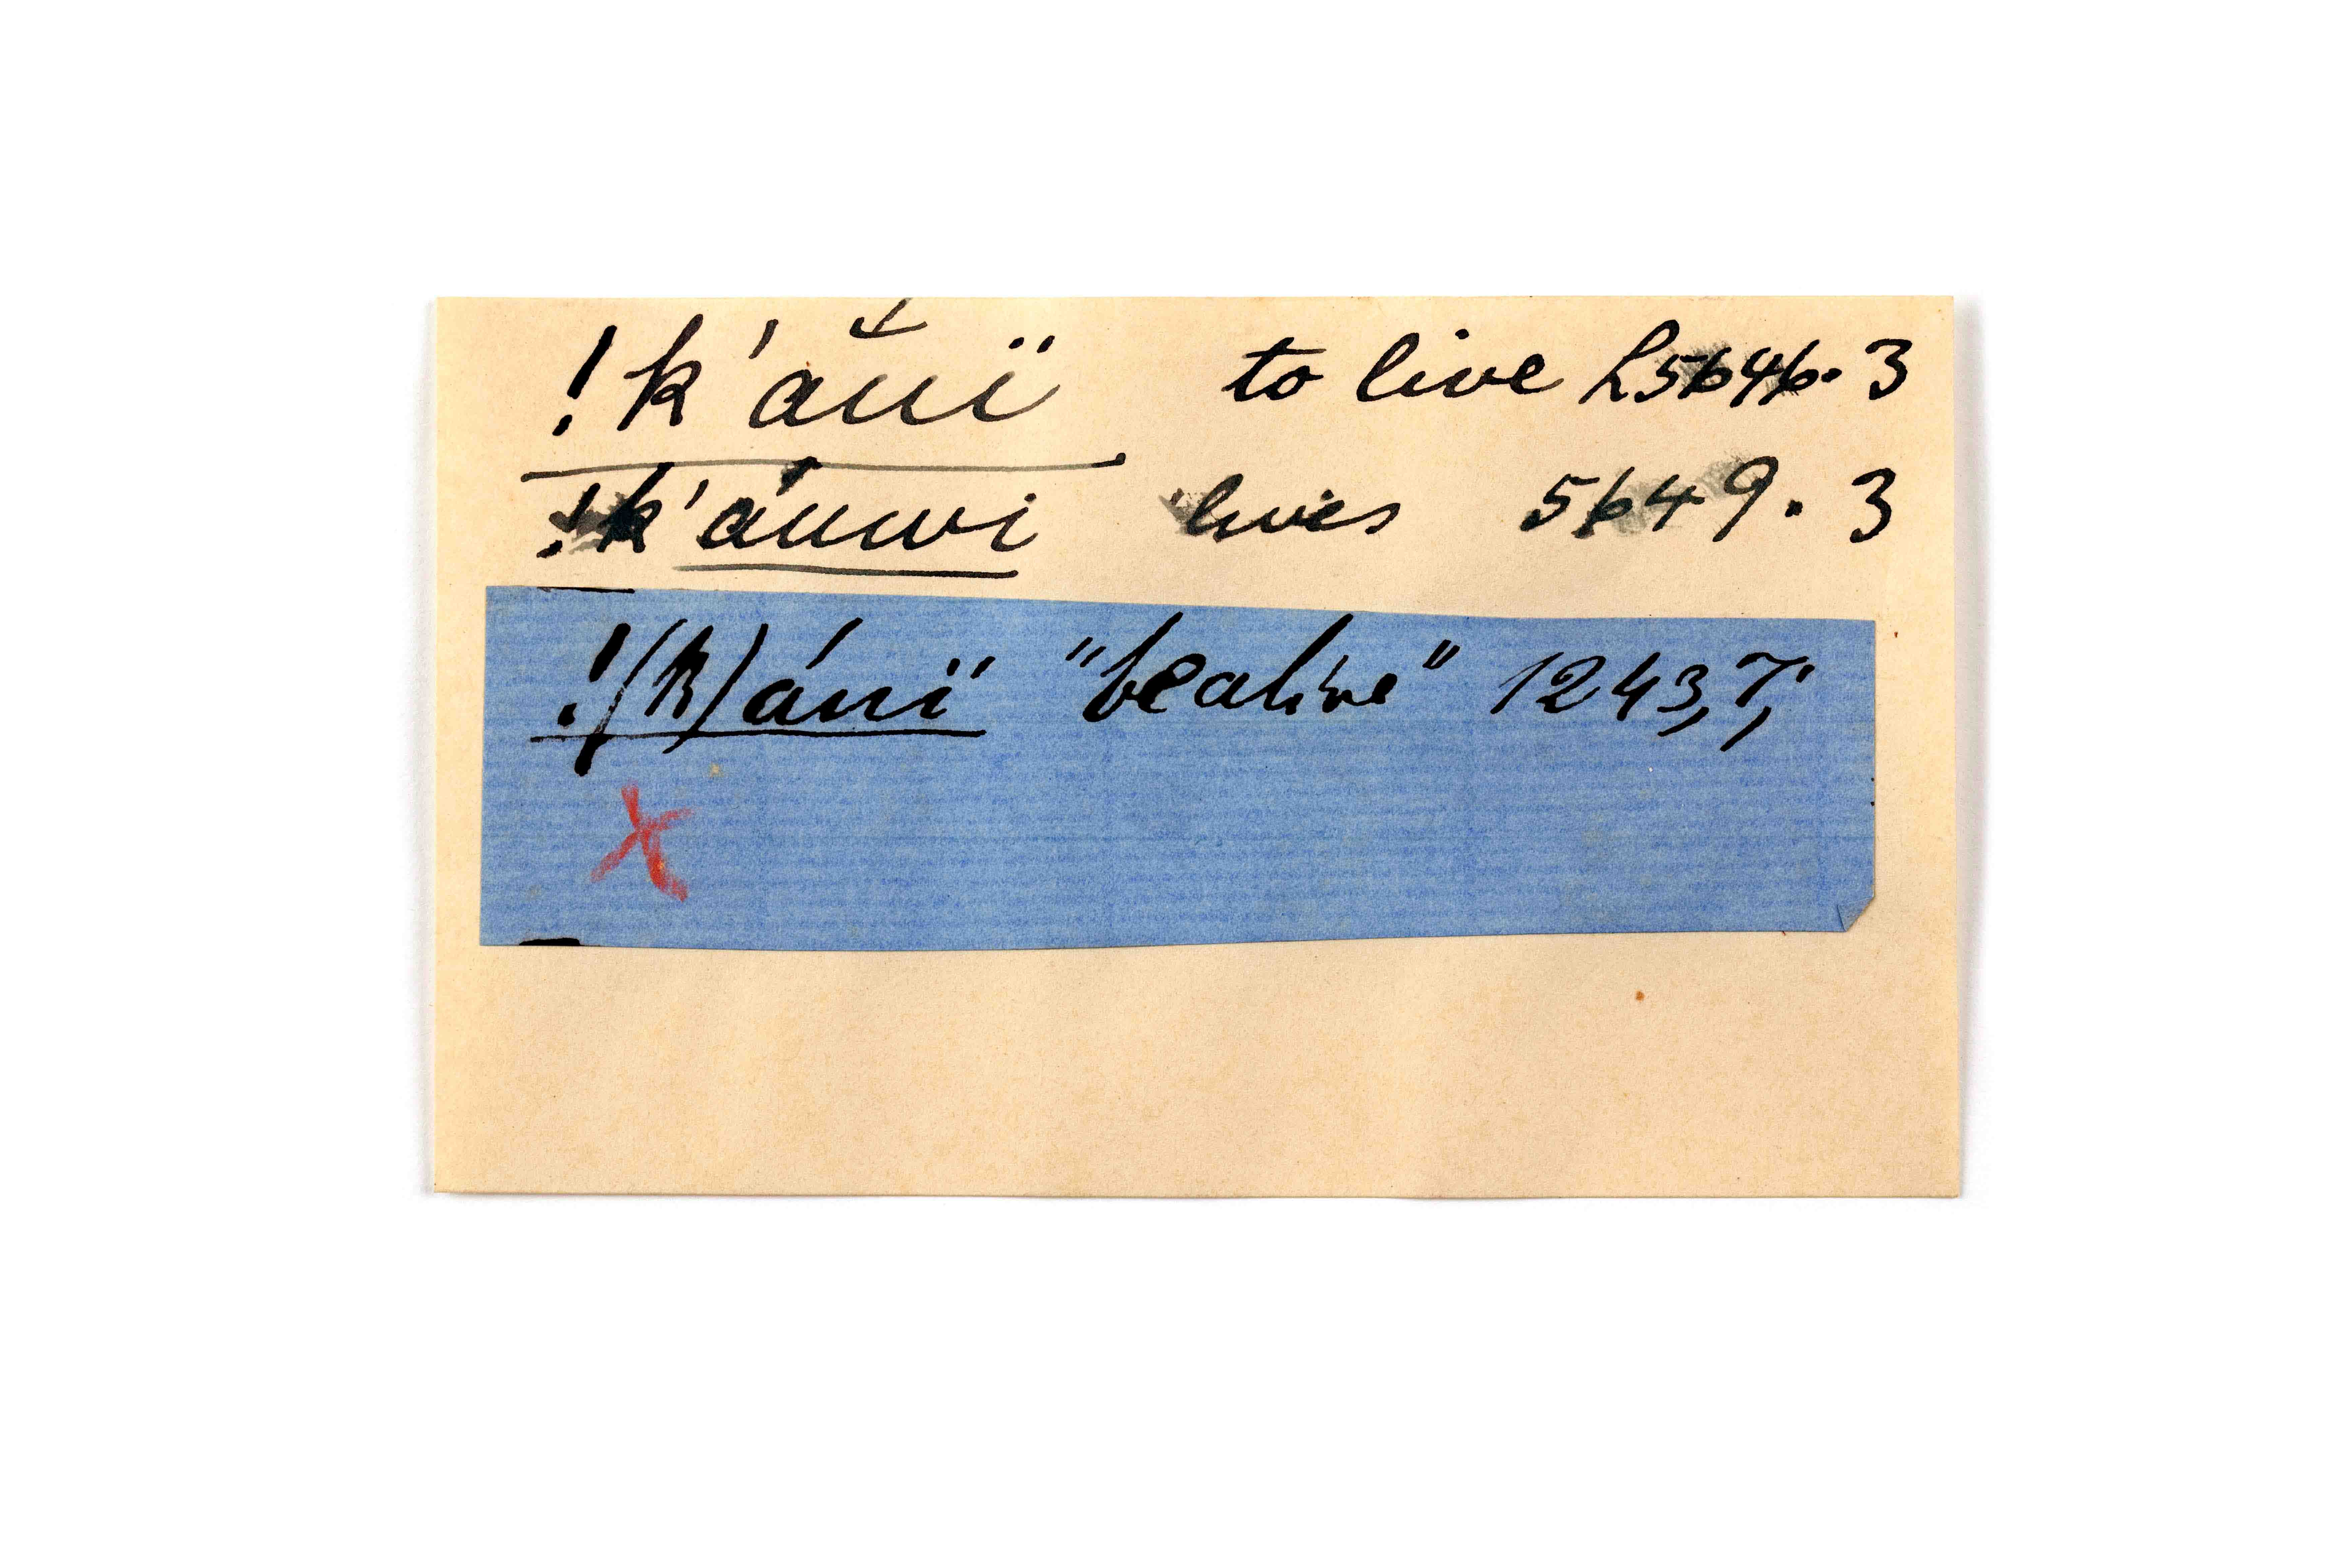 !k'auï to live L5646.3
!k'auwi lives 5649.3
!(k)áuï "be alive" 1243,7,'
X